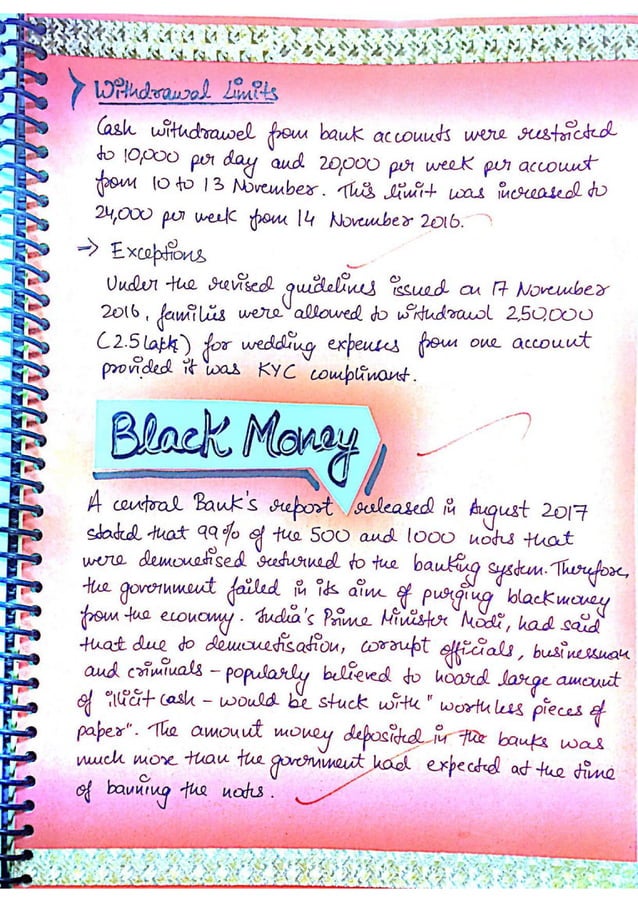 Withdrawal Limits
Cash withdrawel from bank accounts were restricted
to 10,000 per day and 20,000 per week per account
from 10 to 13 November. This limit was increased to
24,000 per week from 14 November 2016.
→ Exceptions
Under the revised guidelines issued on 17 November
2016, families were allowed to withdrawl 2,50,000
(2.5 lakh) for wedding expenses from one account
provided it was KYC complinant.
Black Money
A central Bank's report released in August 2017
stated that 99% of the 500 and 1000 notes that
were demonetised returned to the banking system. Therefore,
the government failed in its aim of purging blackmoney
from the economy. India's Prime Minister Modi, had said
that due to demonetisation, corrupt officials, businessman
and criminals - popularly believed to hoard large amount
of illicit cash - would be stuck with "worthless pieces of
paper". The amount money deposited in the banks was
much more than the government had expected at the time
of banning the notes.